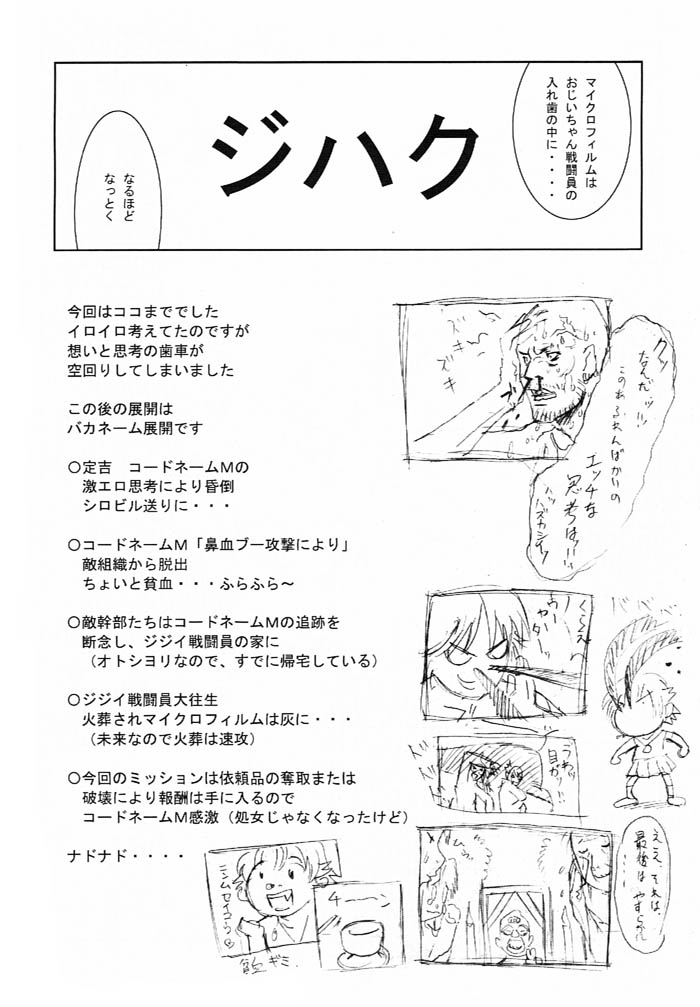 マイクロフィルムは
おじいちゃん戦闘員の
入れ歯の中に・・・・
ジハク
なるほど
なっとく
今回はココまででした
イロイロ考えてたのですが
想いと思考の歯車が
空回りしてしまいました
この後の展開は
バカネーム展開です
○定吉　コードネームMの
激エロ思考により昏倒
シロビル送りに・・・
○コードネームM「鼻血ブー攻撃により」
敵組織から脱出
ちょいと貧血・・・ふらふら～
○敵幹部たちはコードネームMの追跡を
断念し、ジジイ戦闘員の家に
（オトシヨリなので、すでに帰宅している）
○ジジイ戦闘員大往生
火葬されマイクロフィルムは灰に・・・
（未来なので火葬は速攻）
○今回のミッションは依頼品の奪取または
破壊により報酬は手に入るので
コードネームM感激（処女じゃなくなったけど）
ナドナド・・・・
ズキ
ズキ
クッ
なんだッ!!
このあふれんばかいの
エッチな
思考はッ!!
ハッ
ハズカシイッ
くらえ
うわッ
目がッ!!
ニンムセイコウ♡
チーン
ギミ
ええ、それは、
最後は